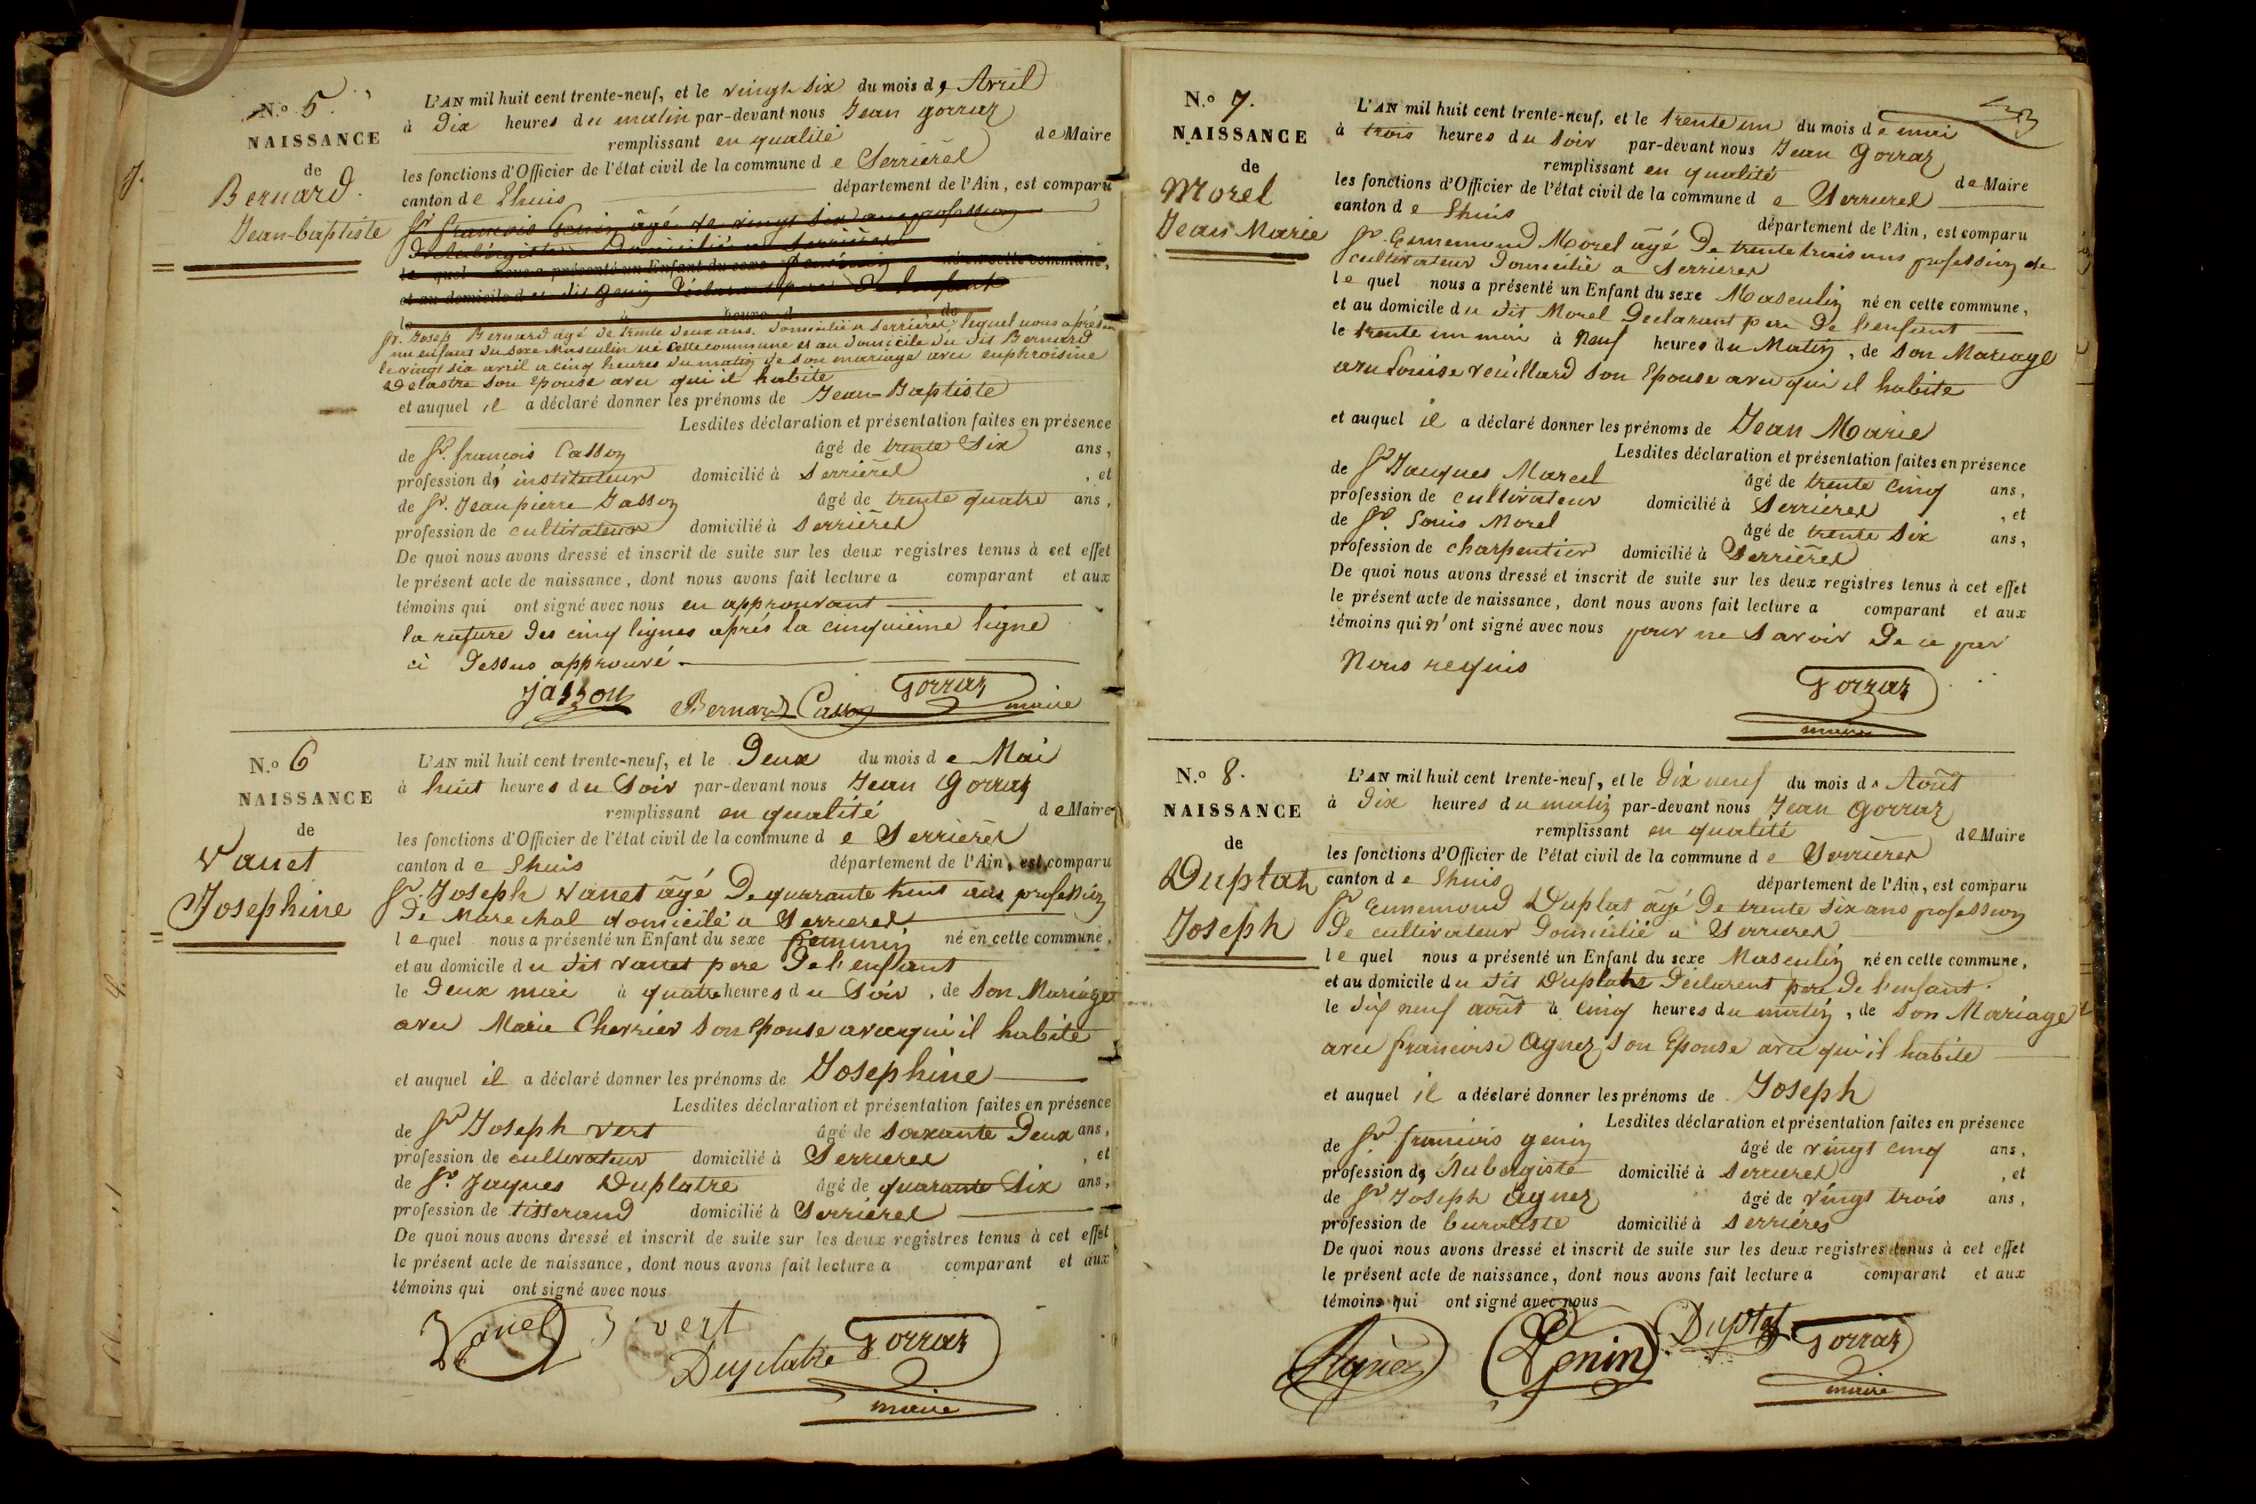 N.o 5.
NAISSANCE
de
Bernard.
Jean-baptiste
L'AN mil huit cent trente-neuf, et le vingt six du mois de Avril
à Dix heures du matin par-devant nous Jean gorraz
remplissant en qualité de Maire
les fonctions d'Officier de l'état civil de la commune de Serrières
canton de Lhuis département de l'Ain, est comparu
Sr francois Genin âgé de vingt six ans profession
D'aubergiste Domicilié a Serrieres
le quel nous a présenté un Enfant du sexe féminin né en cette commune,
et au domicile du dit genin Déclarant pere De l'enfant
le à heure d de
Sr. Joseph Bernard agé de trente deux ans. Domicilié a Serrieres, lequel nous a présenté
un enfant du sexe Masculin né Cette commune et au domicile du dit Bernard
le vingt six avril a cinq heures du matin de son mariage avec euphroisine
Delastre son epouse avec qui il habite
et auquel il a déclaré donner les prénoms de Jean-Baptiste
Lesdites déclaration et présentation faites en présence
de Sr. francois Casson âgé de trente Six ans,
profession d' instituteur domicilié à Serrières, et
de Sr. Jean pierre Jasson âgé de trente quatre ans,
profession de cultivateur domicilié à Serrières
De quoi nous avons dressé et inscrit de suite sur les deux registres tenus à cet effet
le présent acte de naissance, dont nous avons fait lecture a comparant et aux
témoins qui ont signé avec nous en approuvant
la rature Des cinq lignes aprés la cinquième ligne
ci Dessus approuvé.
Jasson Bernard Casson Gorraz maire
N.o 6
NAISSANCE
de
Vanet
Josephine
L'AN mil huit cent trente-neuf, et le Deux du mois de Mai
à huit heures du Soir par-devant nous Jean Gorraz
remplissant en qualité de Maire
les fonctions d'Officier de l'état civil de la commune de Serrieres
canton de Lhuis département de l'Ain, est comparu
Sr Joseph Vanet âgé De quarante huit ans profession
De Marechal domicilé a Serrieres
le quel nous a présenté un Enfant du sexe feminin né en cette commune,
et au domicile du dit vanet pere De l'enfant
le Deux mai à quatre heures du Soir, de Son Mariage
avec Marie Cherrier Son Epouse avec qui il habite
et auquel il a déclaré donner les prénoms de Josephine
Lesdites déclaration et présentation faites en présence
de Sr Joseph vert âgé de soixante Deux ans,
profession de cultivateur domicilié à Serrieres, et
de Sr. Jaques Duplatre âgé de quarante Six ans,
profession de tisserand domicilié à Serriéres
De quoi nous avons dressé et inscrit de suite sur les deux registres tenus à cet effet
le présent acte de naissance, dont nous avons fait lecture a comparant et aux
témoins qui ont signé avec nous
Vanet J. vert Duplatre Gorraz
maire
N.o 7.
NAISSANCE
de
Morel
Jean Marie
L'AN mil huit cent trente-neuf, et le trente un du mois de mai
à trois heures du Soir par-devant nous Jean Gorraz
remplissant en qualité de Maire
les fonctions d'Officier de l'état civil de la commune de Serrieres
canton de Lhuis département de l'Ain, est comparu
Sr. Ennemond Morel âgé De trente trois ans profession de
cultivateur Domicilié a Serrieres
le quel nous a présenté un Enfant du sexe Masculin né en cette commune,
et au domicile du dit Morel Declarant pere De l'enfant
le trente un mai à Neuf heures du Matin, de Son Mariage
avec Louise Veuillard Son Epouse avec qui il habite
et auquel il a déclaré donner les prénoms de Jean Marie
Lesdites déclaration et présentation faites en présence
de Sr Jauques Marcel âgé de trente cinq ans,
profession de cultivateur domicilié à Serriéres, et
de Sr Louis Morel âgé de trente Six ans,
profession de charpentier domicilié à Serrières
De quoi nous avons dressé et inscrit de suite sur les deux registres tenus à cet effet
le présent acte de naissance, dont nous avons fait lecture a comparant et aux
témoins qui n'ont signé avec nous pour ne Savoir De ce par
Nous requis
Gorraz
maire
N.o 8.
NAISSANCE
de
Duplat
Joseph
L'AN mil huit cent trente-neuf, et le Dix neuf du mois d Août
à Dix heures du matin par-devant nous Jean Gorraz
remplissant en qualité de Maire
les fonctions d'Officier de l'état civil de la commune de Serrieres
canton de Lhuis département de l'Ain, est comparu
Sr Ennemond Duplat âgé De trente Six ans profession
De cultivateur Domicilié a Serrieres
le quel nous a présenté un Enfant du sexe Masculin né en cette commune,
et au domicile du dit Duplat Déclarent pere de l'enfant.
le dix neuf août à cinq heures du matin, de Son Mariage
avec francoise Agnez Son Epouse avec qu'il habite
et auquel il a déclaré donner les prénoms de Joseph
Lesdites déclaration et présentation faites en présence
de Sr francois genin âgé de vingt cinq ans,
profession d' Aubergiste domicilié à Serrieres, et
de Sr Joseph Agnez âgé de vingt trois ans,
profession de buraliste domicilié à Serriéres
De quoi nous avons dressé et inscrit de suite sur les deux registres tenus à cet effet
le présent acte de naissance, dont nous avons fait lecture a comparant et aux
témoins qui ont signé avec nous
Agnez Genin Duplat Gorraz
maire